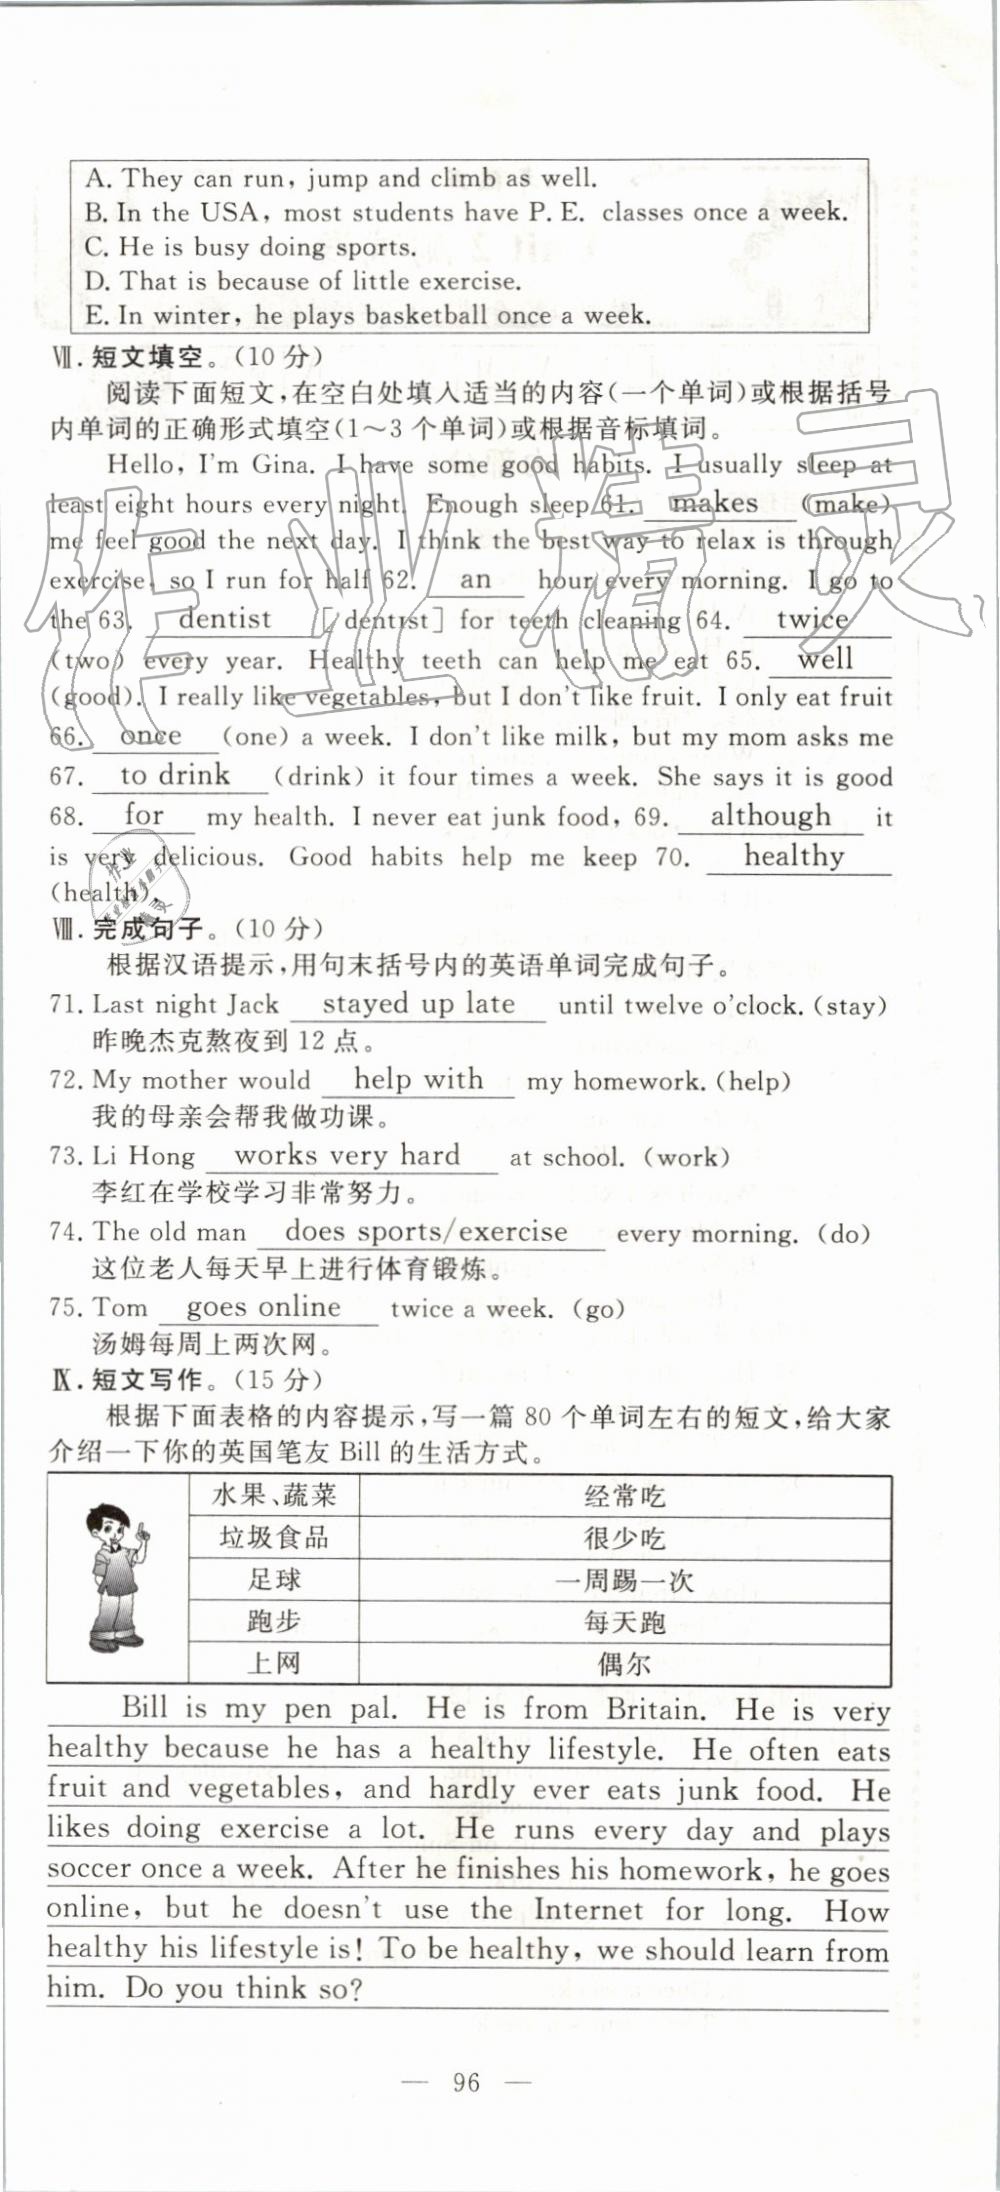 A. They can run, jump and climb as well.
B. In the USA, most students have P. E. classes once a week.
C. He is busy doing sports.
D. That is because of little exercise.
E. In winter, he plays basketball once a week.
Ⅶ. 短文填空。(10 分)
阅读下面短文,在空白处填入适当的内容(一个单词)或根据括号
内单词的正确形式填空(1～3 个单词)或根据音标填词。
Hello, I'm Gina. I have some good habits. I usually sleep at
least eight hours every night. Enough sleep 61. makes (make)
me feel good the next day. I think the best way to relax is through
exercise, so I run for half 62. an hour every morning. I go to
the 63. dentist [ˈdentɪst] for teeth cleaning 64. twice
(two) every year. Healthy teeth can help me eat 65. well
(good). I really like vegetables, but I don't like fruit. I only eat fruit
66. once (one) a week. I don't like milk, but my mom asks me
67. to drink (drink) it four times a week. She says it is good
68. for my health. I never eat junk food, 69. although it
is very delicious. Good habits help me keep 70. healthy
(health).
Ⅷ. 完成句子。(10 分)
根据汉语提示,用句末括号内的英语单词完成句子。
71. Last night Jack stayed up late until twelve o'clock. (stay)
昨晚杰克熬夜到 12 点。
72. My mother would help with my homework. (help)
我的母亲会帮我做功课。
73. Li Hong works very hard at school. (work)
李红在学校学习非常努力。
74. The old man does sports/exercise every morning. (do)
这位老人每天早上进行体育锻炼。
75. Tom goes online twice a week. (go)
汤姆每周上两次网。
Ⅸ. 短文写作。(15 分)
根据下面表格的内容提示,写一篇 80 个单词左右的短文,给大家
介绍一下你的英国笔友 Bill 的生活方式。
水果、蔬菜 经常吃
垃圾食品 很少吃
足球 一周踢一次
跑步 每天跑
上网 偶尔
Bill is my pen pal. He is from Britain. He is very
healthy because he has a healthy lifestyle. He often eats
fruit and vegetables, and hardly ever eats junk food. He
likes doing exercise a lot. He runs every day and plays
soccer once a week. After he finishes his homework, he goes
online, but he doesn't use the Internet for long. How
healthy his lifestyle is! To be healthy, we should learn from
him. Do you think so?
— 96 —
作业精灵